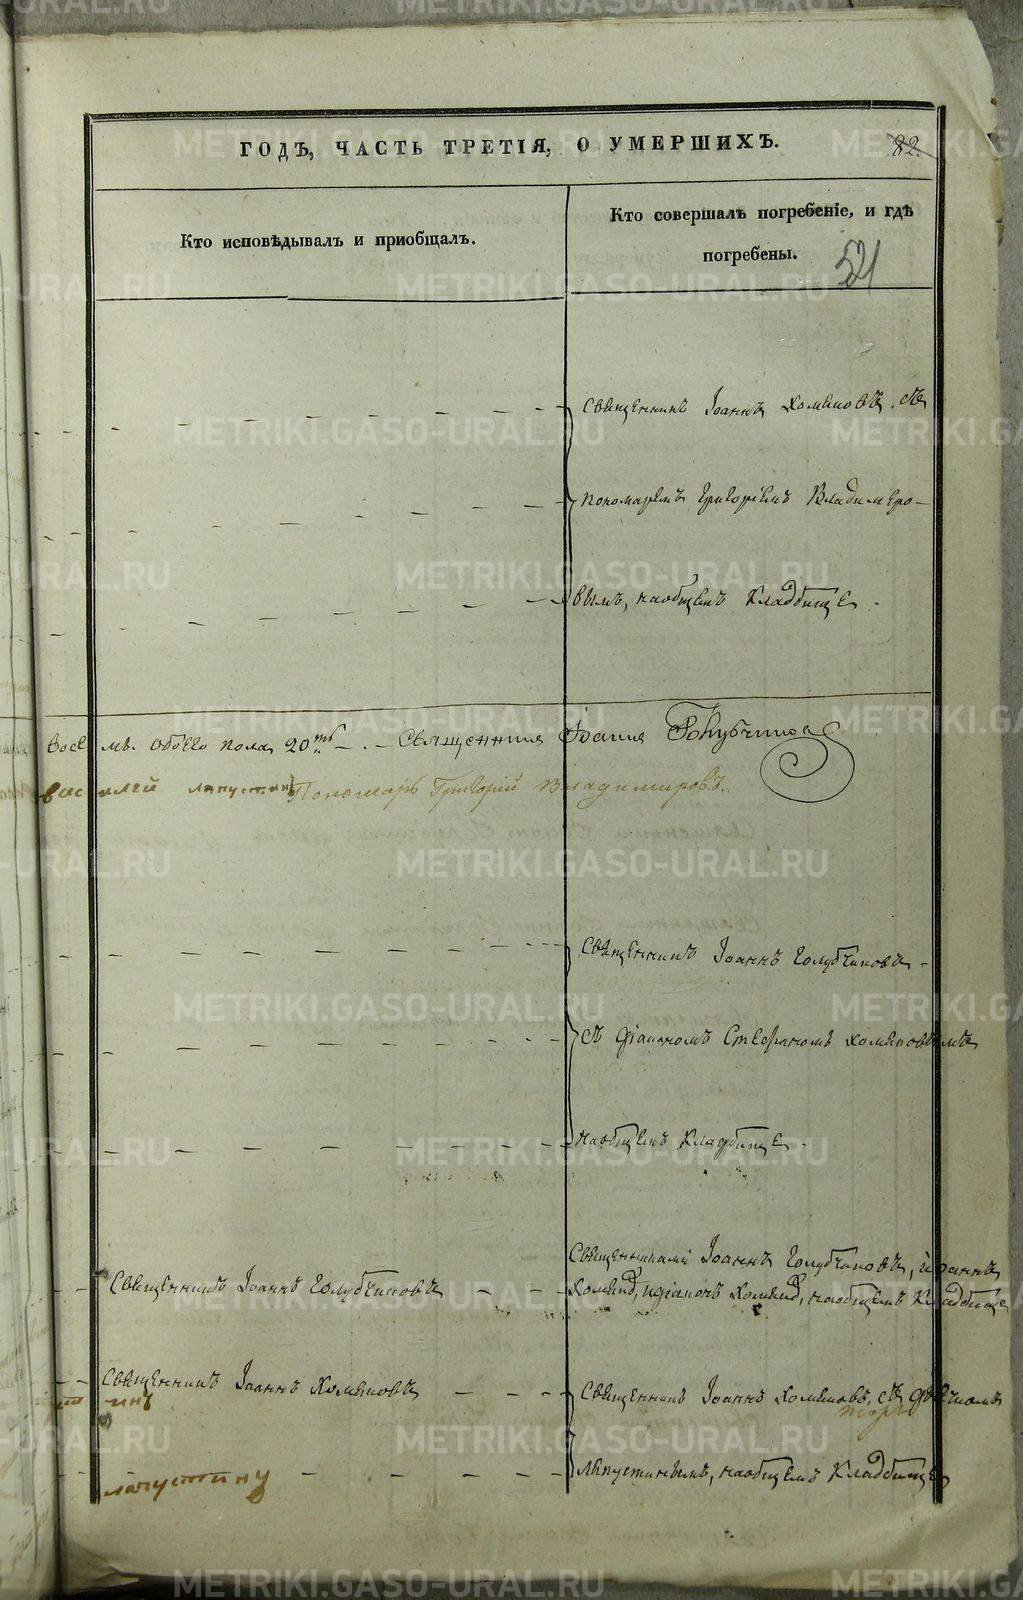 ГОДЪ, ЧАСТЬ ТРЕТІЯ, О УМЕРШИХЪ.
82.
Кто исповѣдывалъ и пріобщалъ.
Кто совершалъ погребеніе, и гдѣ
погребены.
521
Священникъ Іоаннъ Хомяковъ, съ
пономаремъ Григоріемъ Владимеро-
вымъ, на общемъ кладбище.
восемь. Обоего пола 20ть Священникъ Іоаннъ Голубчиковъ
василей лапустинъ Пономарь Григорій Владимировъ.
Священникъ Іоаннъ Голубчиковъ
съ діакономъ Стефаномъ Хомяковымъ
на общемъ кладбище.
Священниками Іоаннъ Голубчиковъ, Іоаннъ
Священникъ Іоаннъ Голубчиковъ
діаконъ на общемъ кладбище
Священникъ Іоаннъ Хомяковъ
Священникъ Іоаннъ Хомяковъ, съ дьячкомъ
лапустину
Лапустинымъ, на общемъ кладбище
METRIKI.GASO-URAL.RU